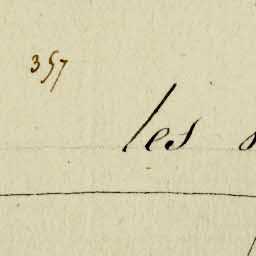 357
les